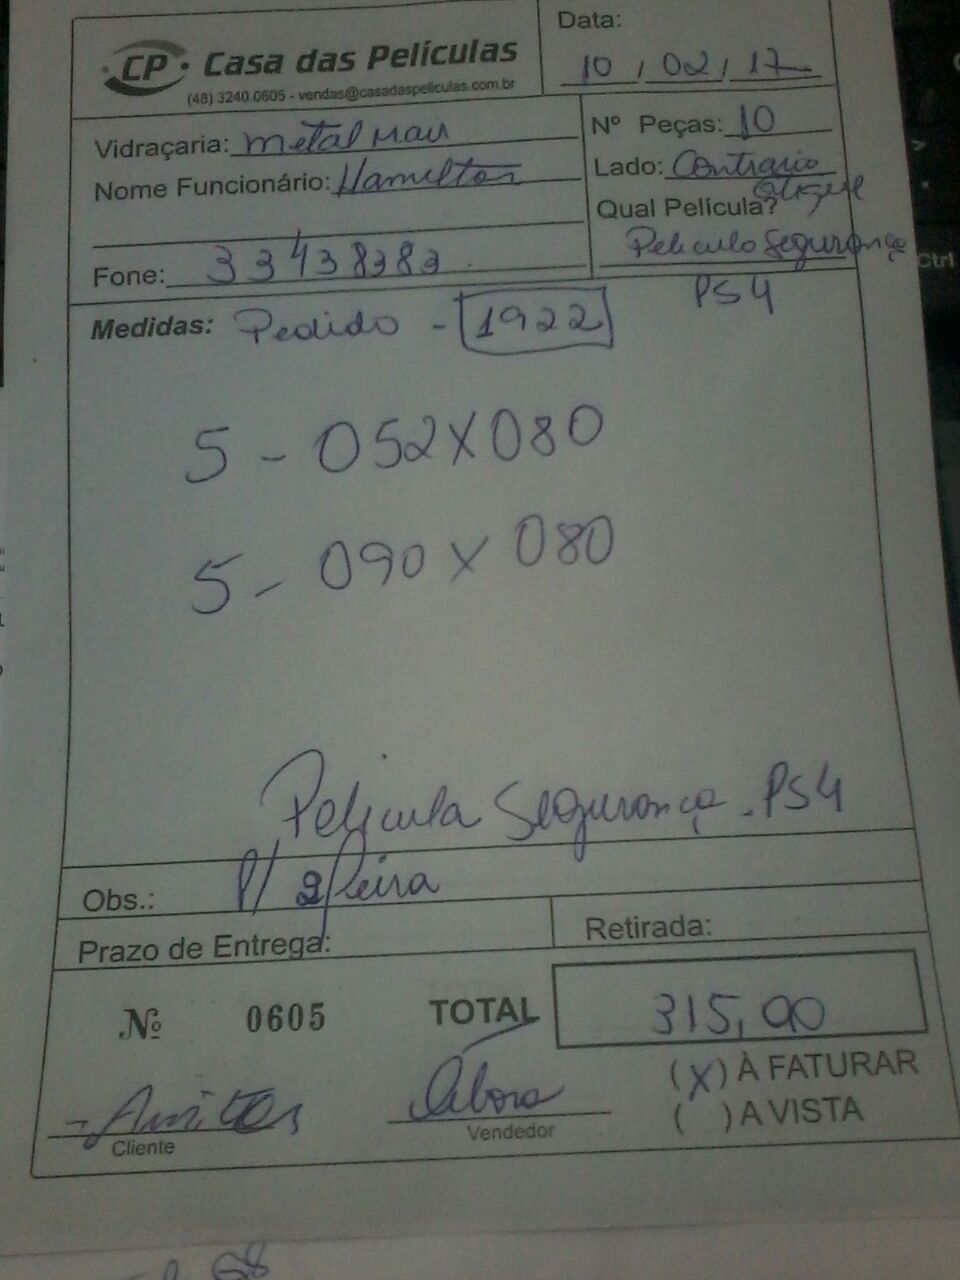 CP Casa das Películas
(48) 3240 0605 - vendas@casadaspeliculas.com.br
Data:
10, 02, 17
Vidraçaria: metal
Nome Funcionário: Hamilton
Fone: 33438383
Nº Peças: 10
Lado: Contrario
Qual Película?
Pelicula Segurança
PS4
Medidas: Pedido - 1922
5 - 052X080
5 - 090 X 080
Pelicula Segurança - PS4
Obs.: P/ 2ª feira
Prazo de Entrega:
Retirada:
Nº 0605 TOTAL 315,00
(X) À FATURAR
( ) A VISTA
Cliente
Vendedor
Ctrl